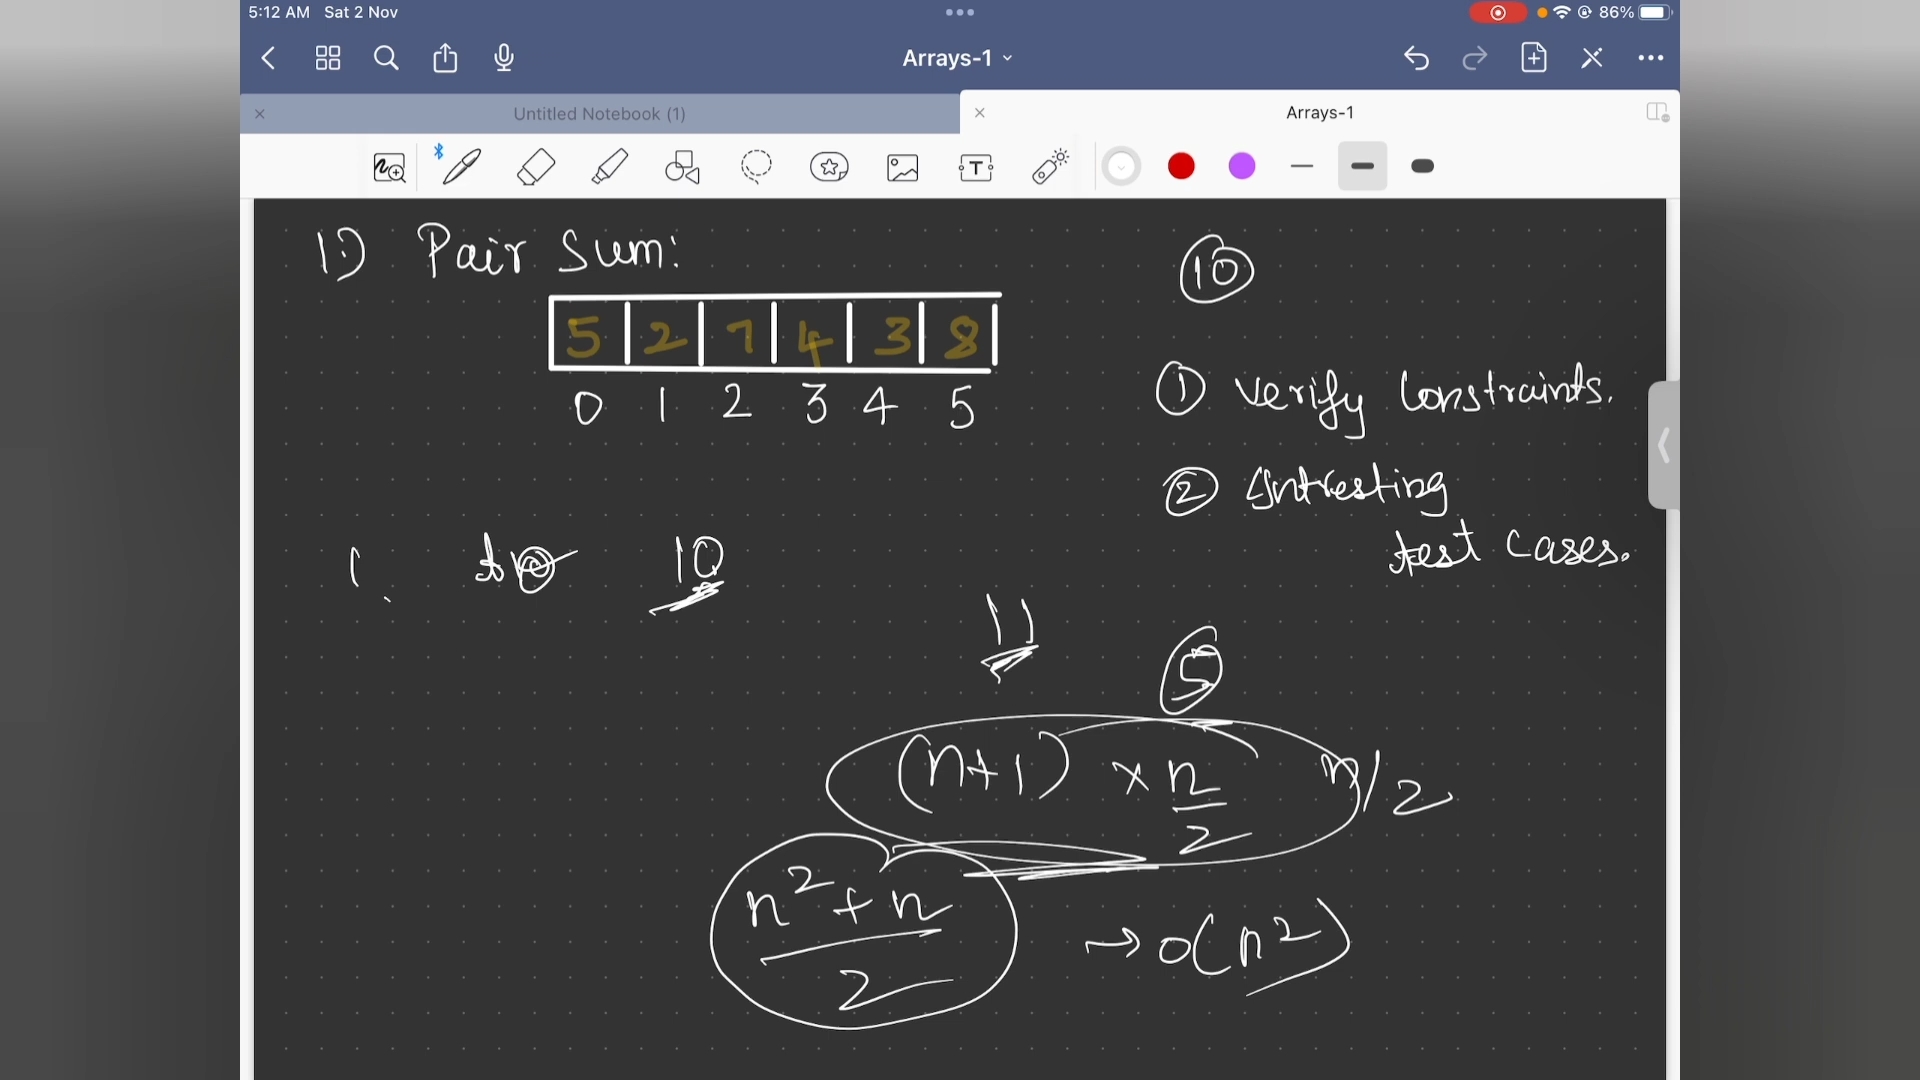 5:12 AM Sat 2 Nov
86%
Arrays-1
Untitled Notebook (1)
Arrays-1
T
1.) Pair Sum:
10
5 2 7 4 3 8
0 1 2 3 4 5
① verify Constraints.
② Intresting
test cases.
10
11
5
(n+1) × n/2
n/2
n²+n/2
→ O(n²)